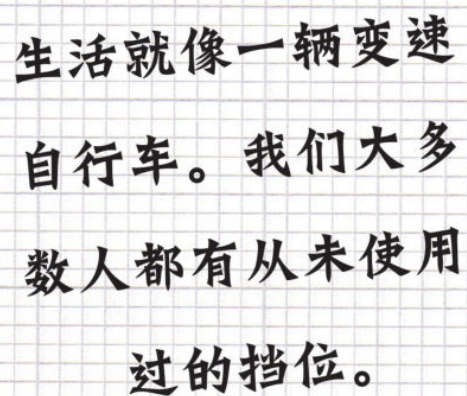 生活就像一辆变速
自行车。我们大多
数人都有从未使用
过的挡位。